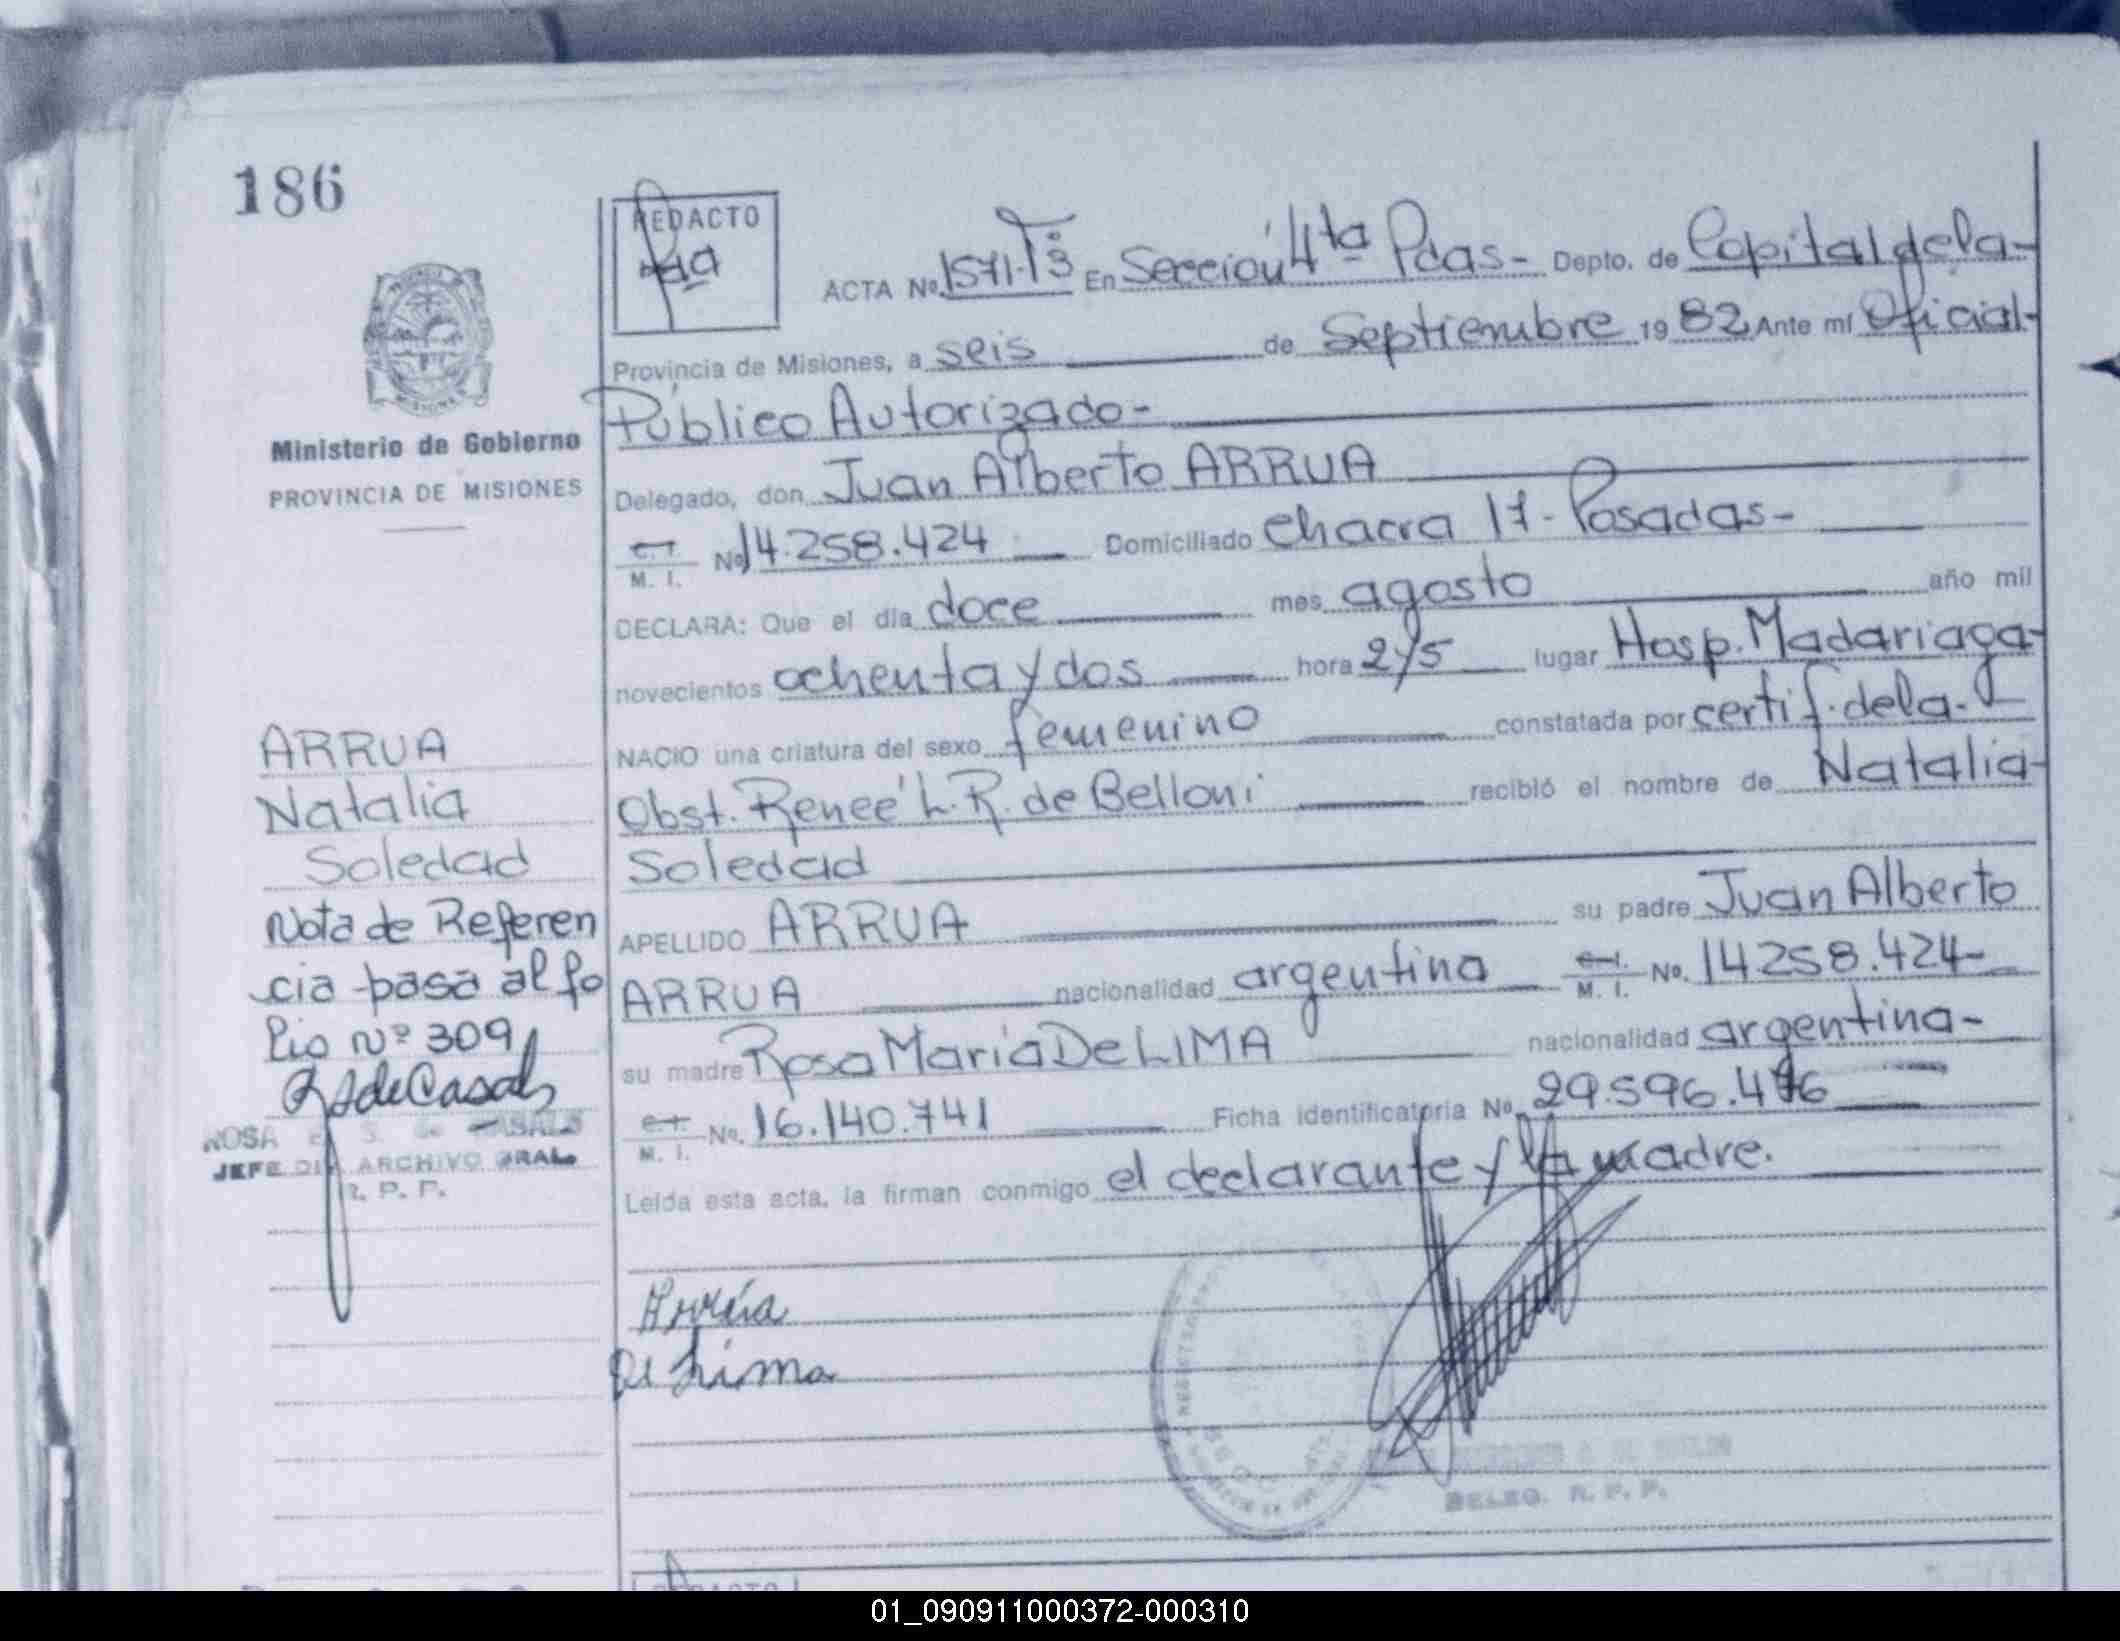 186
REDACTO
ACTA No. 1571-Tº3 En Sección 4ta Pdas- Depto. de Capital de la-
Provincia de Misiones, a seis de Septiembre 19 82 Ante mí Oficial-
Público Autorizado-
Ministerio de Gobierno
PROVINCIA DE MISIONES
Delegado, don Juan Alberto ARRUA
M. I. No 14.258.424 Domiciliado Chacra 17- Posadas-
DECLARA: Que el día doce mes agosto año mil
novecientos ochenta y dos hora 2y5 lugar Hosp. Madariaga-
NACIO una criatura del sexo femenino constatada por certif. de la-
Obst. Reneé L. R. de Belloni recibió el nombre de Natalia-
Soledad
APELLIDO ARRUA su padre Juan Alberto
ARRUA nacionalidad argentina M. I. No. 14258.424-
su madre Rosa María De LIMA nacionalidad argentina-
M. I. No. 16.140.741 Ficha identificatoria No. 29.596.476
Leída esta acta, la firman conmigo el declarante y la madre.
ARRUA
Natalia
Soledad
Nota de Referen
cia pasa al fo
lio Nº 309
RSdeCasals
ROSA E. S. de CASALS
JEFE DIV. ARCHIVO GRAL.
R. P. P.
Arrúa
De Lima
DELEG. R. P. P.
REDACTO
01_090911000372-000310